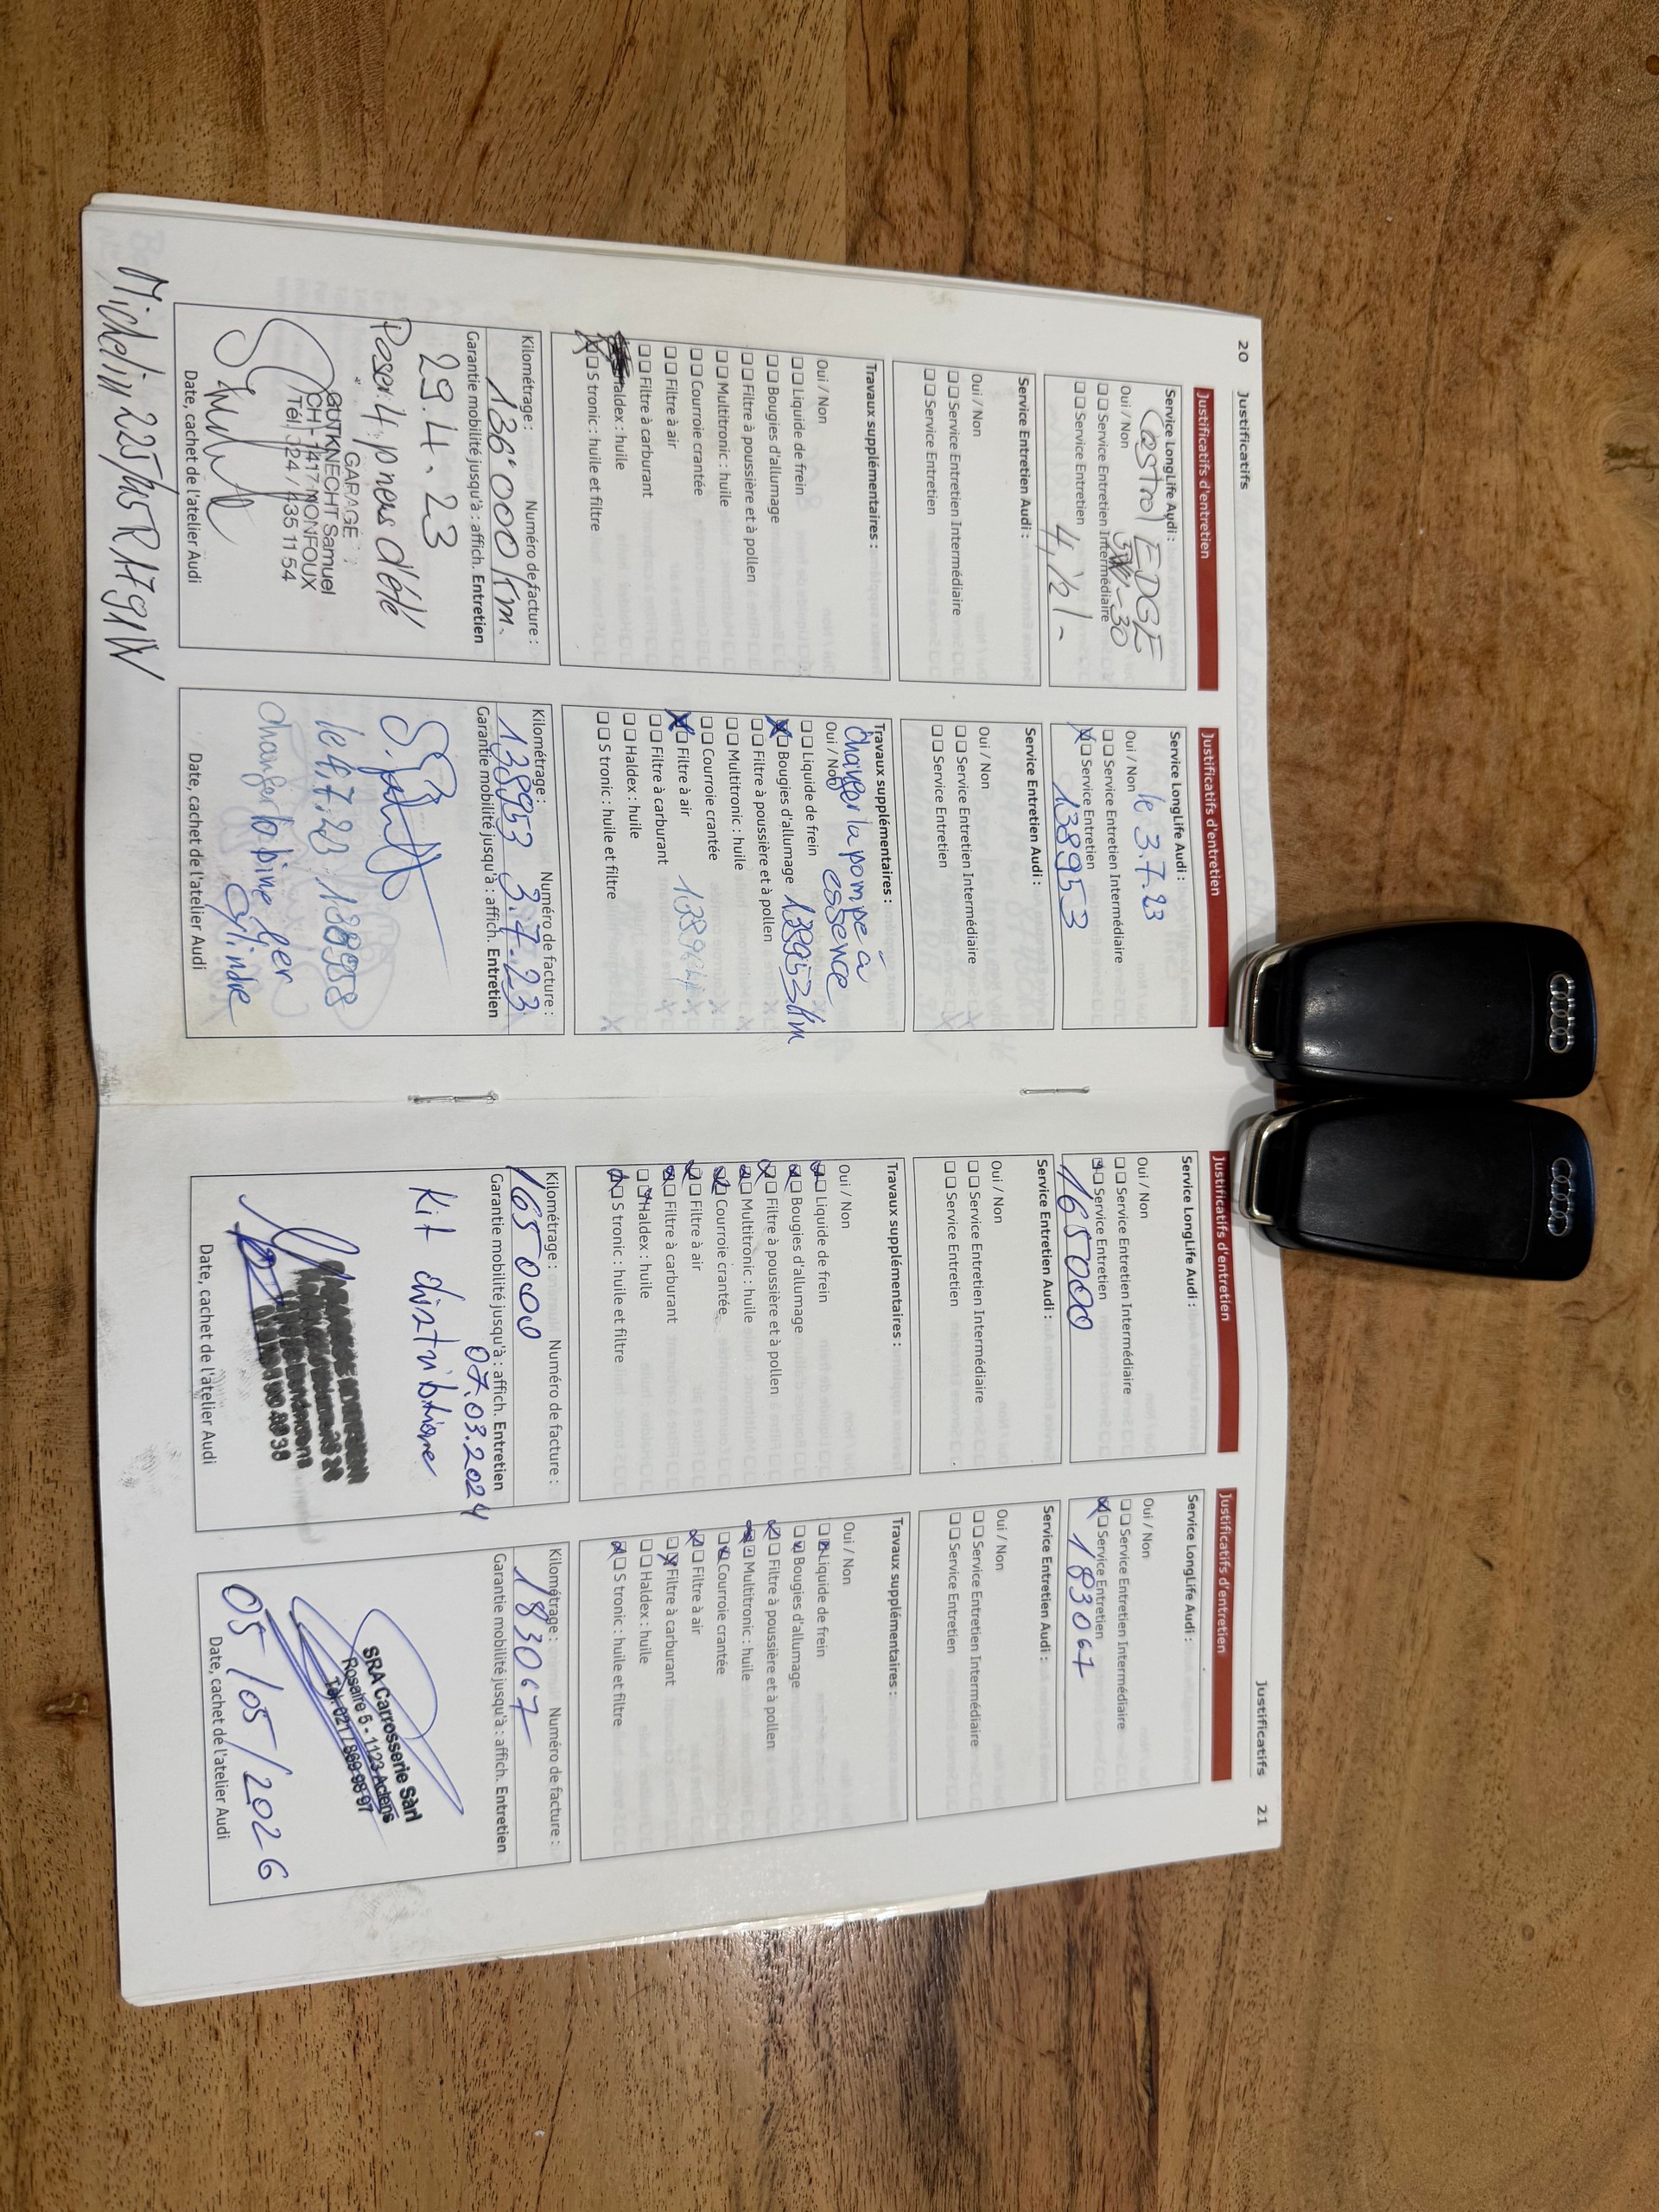 20 Justificatifs
Justificatifs d'entretien
Service LongLife Audi :
Castrol EDGE
Oui / Non
Service Entretien Intermédiaire
Service Entretien
4,½ l-
Service Entretien Audi :
Oui / Non
Service Entretien Intermédiaire
Service Entretien
Travaux supplémentaires :
Oui / Non
Liquide de frein
Bougies d'allumage
Filtre à poussière et à pollen
Multitronic : huile
Courroie crantée
Filtre à air
Filtre à carburant
Haldex : huile
S tronic : huile et filtre
Kilométrage : Numéro de facture :
136'000 Km.
Garantie mobilité jusqu'à : affich. Entretien
29.4.23
Poser 4 pneus d'été
GARAGE
GUTKNECHT Samuel
CH - 1417 MONFOUX
Tél. 024 / 435 11 54
Date, cachet de l'atelier Audi
Michelin 225/45R17 91W
Justificatifs d'entretien
Service LongLife Audi :
Oui / Non le 3.7.23
Service Entretien Intermédiaire
Service Entretien
138953
Service Entretien Audi :
Oui / Non
Service Entretien Intermédiaire
Service Entretien
Travaux supplémentaires :
changer la pompe à
Oui / Non essence
Liquide de frein
Bougies d'allumage 138953 Km
Filtre à poussière et à pollen
Multitronic : huile
Courroie crantée
Filtre à air
Filtre à carburant
Haldex : huile
S tronic : huile et filtre
Kilométrage : Numéro de facture :
138953 3.7.23
Garantie mobilité jusqu'à : affich. Entretien
le 4.7.23 138958
changer bobine 1er
cylindre
Date, cachet de l'atelier Audi
Justificatifs d'entretien
Service LongLife Audi :
Oui / Non
Service Entretien Intermédiaire
Service Entretien
165000
Service Entretien Audi :
Oui / Non
Service Entretien Intermédiaire
Service Entretien
Travaux supplémentaires :
Oui / Non
Liquide de frein
Bougies d'allumage
Filtre à poussière et à pollen
Multitronic : huile
Courroie crantée
Filtre à air
Filtre à carburant
Haldex : huile
S tronic : huile et filtre
Kilométrage : Numéro de facture :
165000
Garantie mobilité jusqu'à : affich. Entretien
07.03.2024
Kit distribtione
Date, cachet de l'atelier Audi
Justificatifs 21
Justificatifs d'entretien
Service LongLife Audi :
Oui / Non
Service Entretien Intermédiaire
Service Entretien
183067
Service Entretien Audi :
Oui / Non
Service Entretien Intermédiaire
Service Entretien
Travaux supplémentaires :
Oui / Non
Liquide de frein
Bougies d'allumage
Filtre à poussière et à pollen
Multitronic : huile
Courroie crantée
Filtre à air
Filtre à carburant
Haldex : huile
S tronic : huile et filtre
Kilométrage : Numéro de facture :
183067
Garantie mobilité jusqu'à : affich. Entretien
SRA Carrosserie Sàrl
Rosaire 5 - 1123 Aclens
Tél. 021 / 869 98 97
05/05/2026
Date, cachet de l'atelier Audi